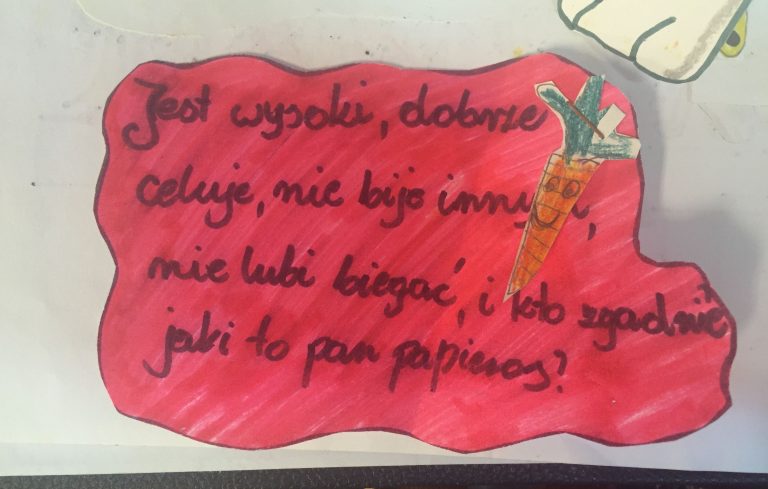 Jest wysoki, dobrze
celuje, nie bije innych,
nie lubi biegać, i kto zgadnie
jaki to pan papieros?